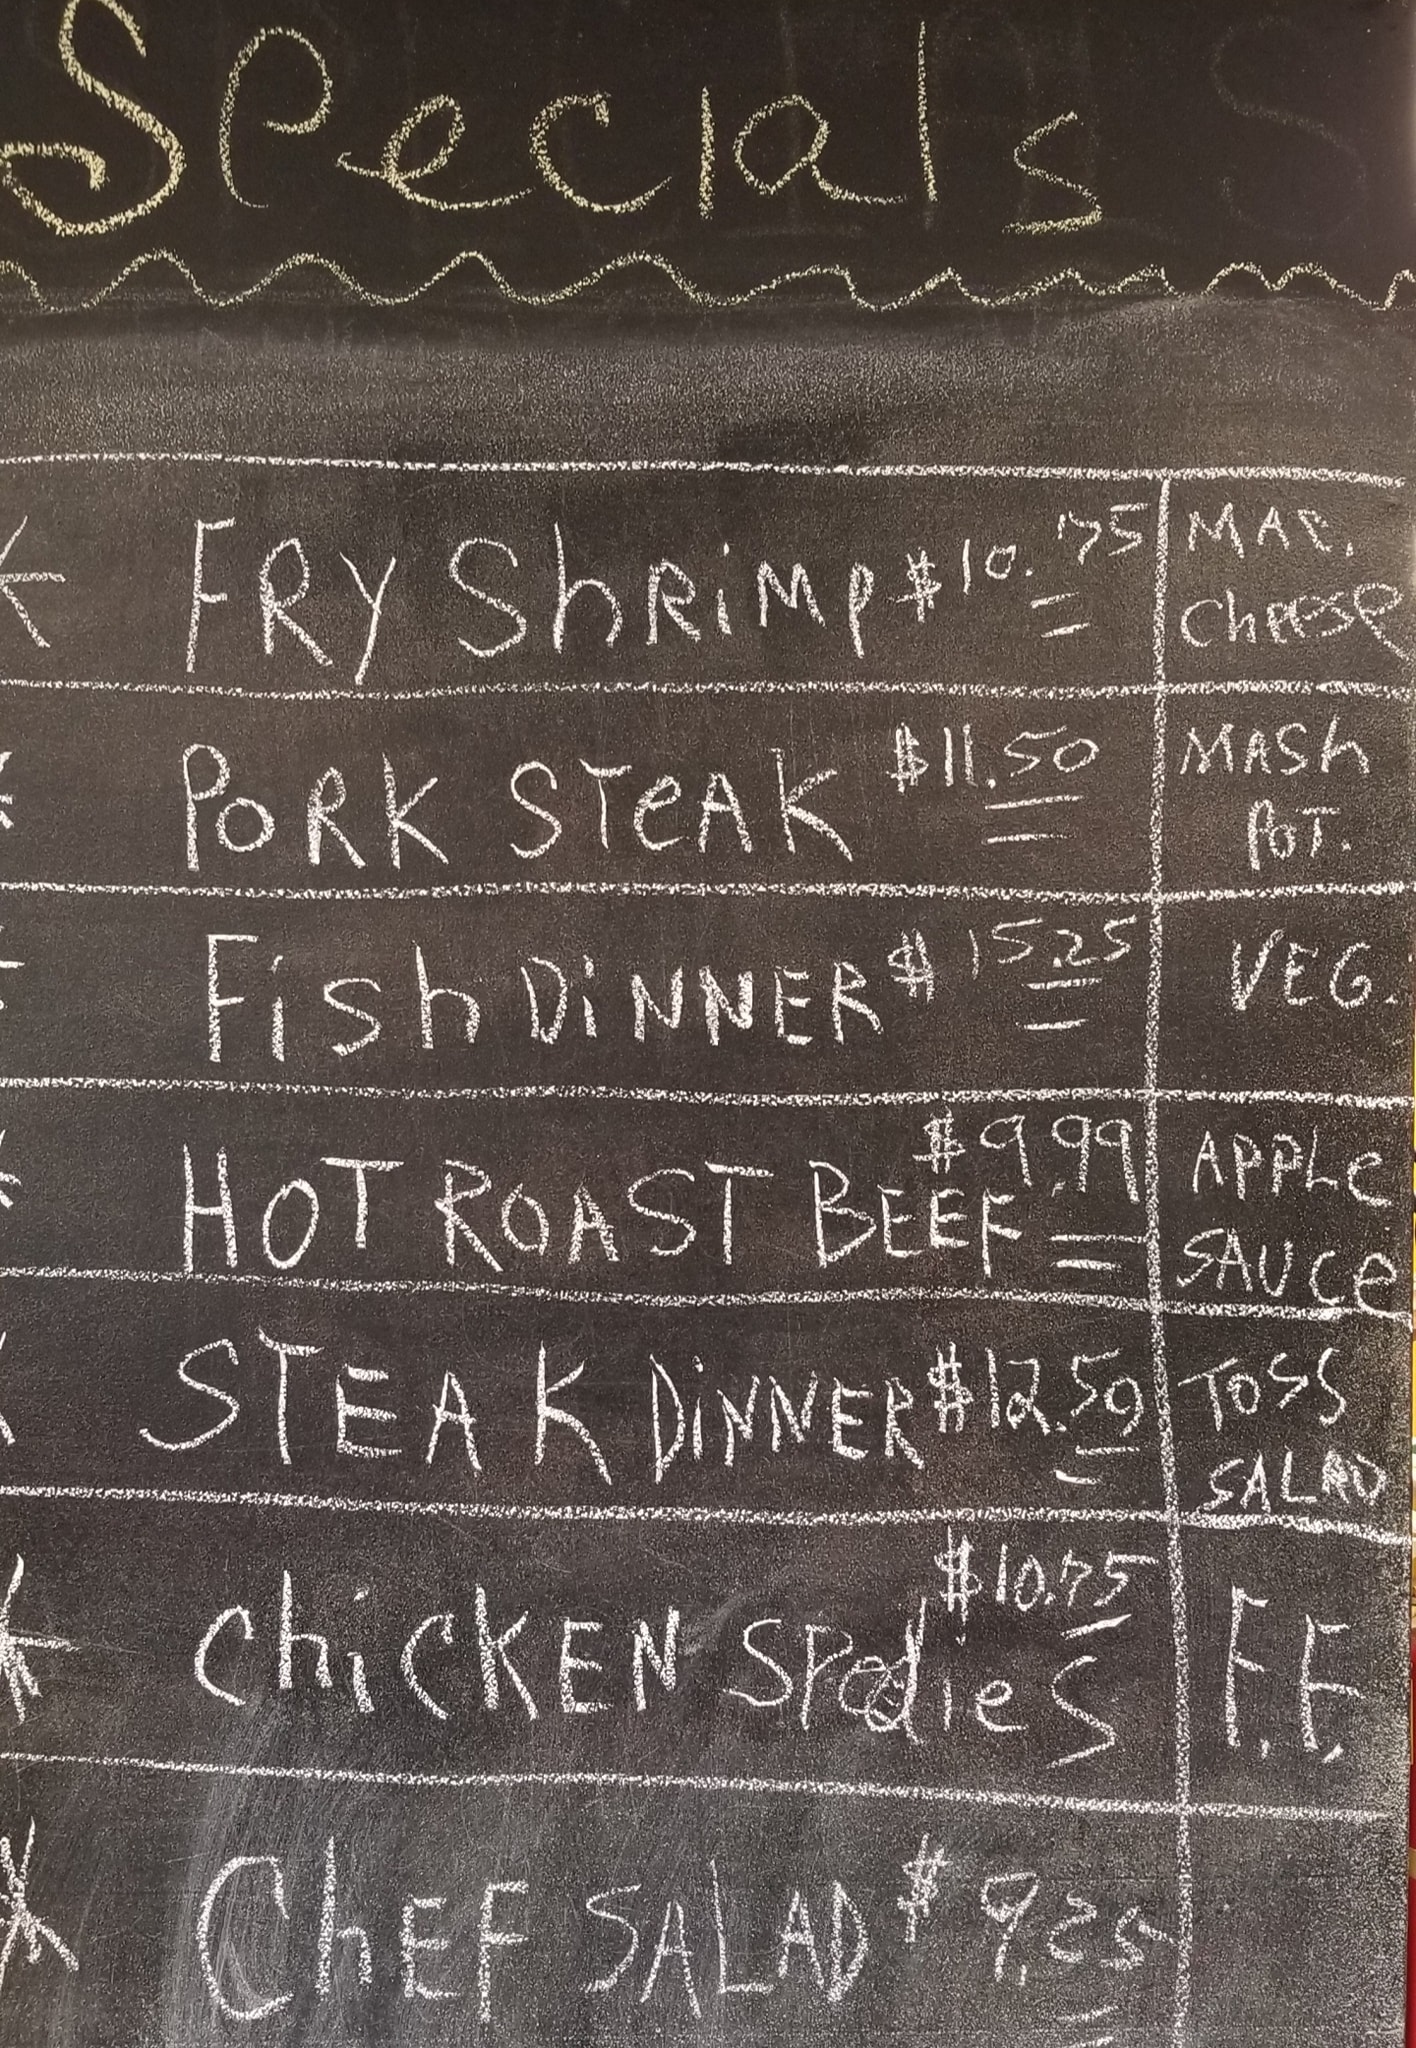 Specials
FRY ShRiMP $10.75 MAC. Cheese
PORK STeAK $11.50 MASh POT.
Fish DiNNER $15.25 VEG.
HOT ROAST BEEF $9.99 APPLe SAUCe
STEAK DiNNER $12.50 TOSS SALAD
ChiCKEN SPedieS $10.75 F.F.
ChEF SALAD $9.25